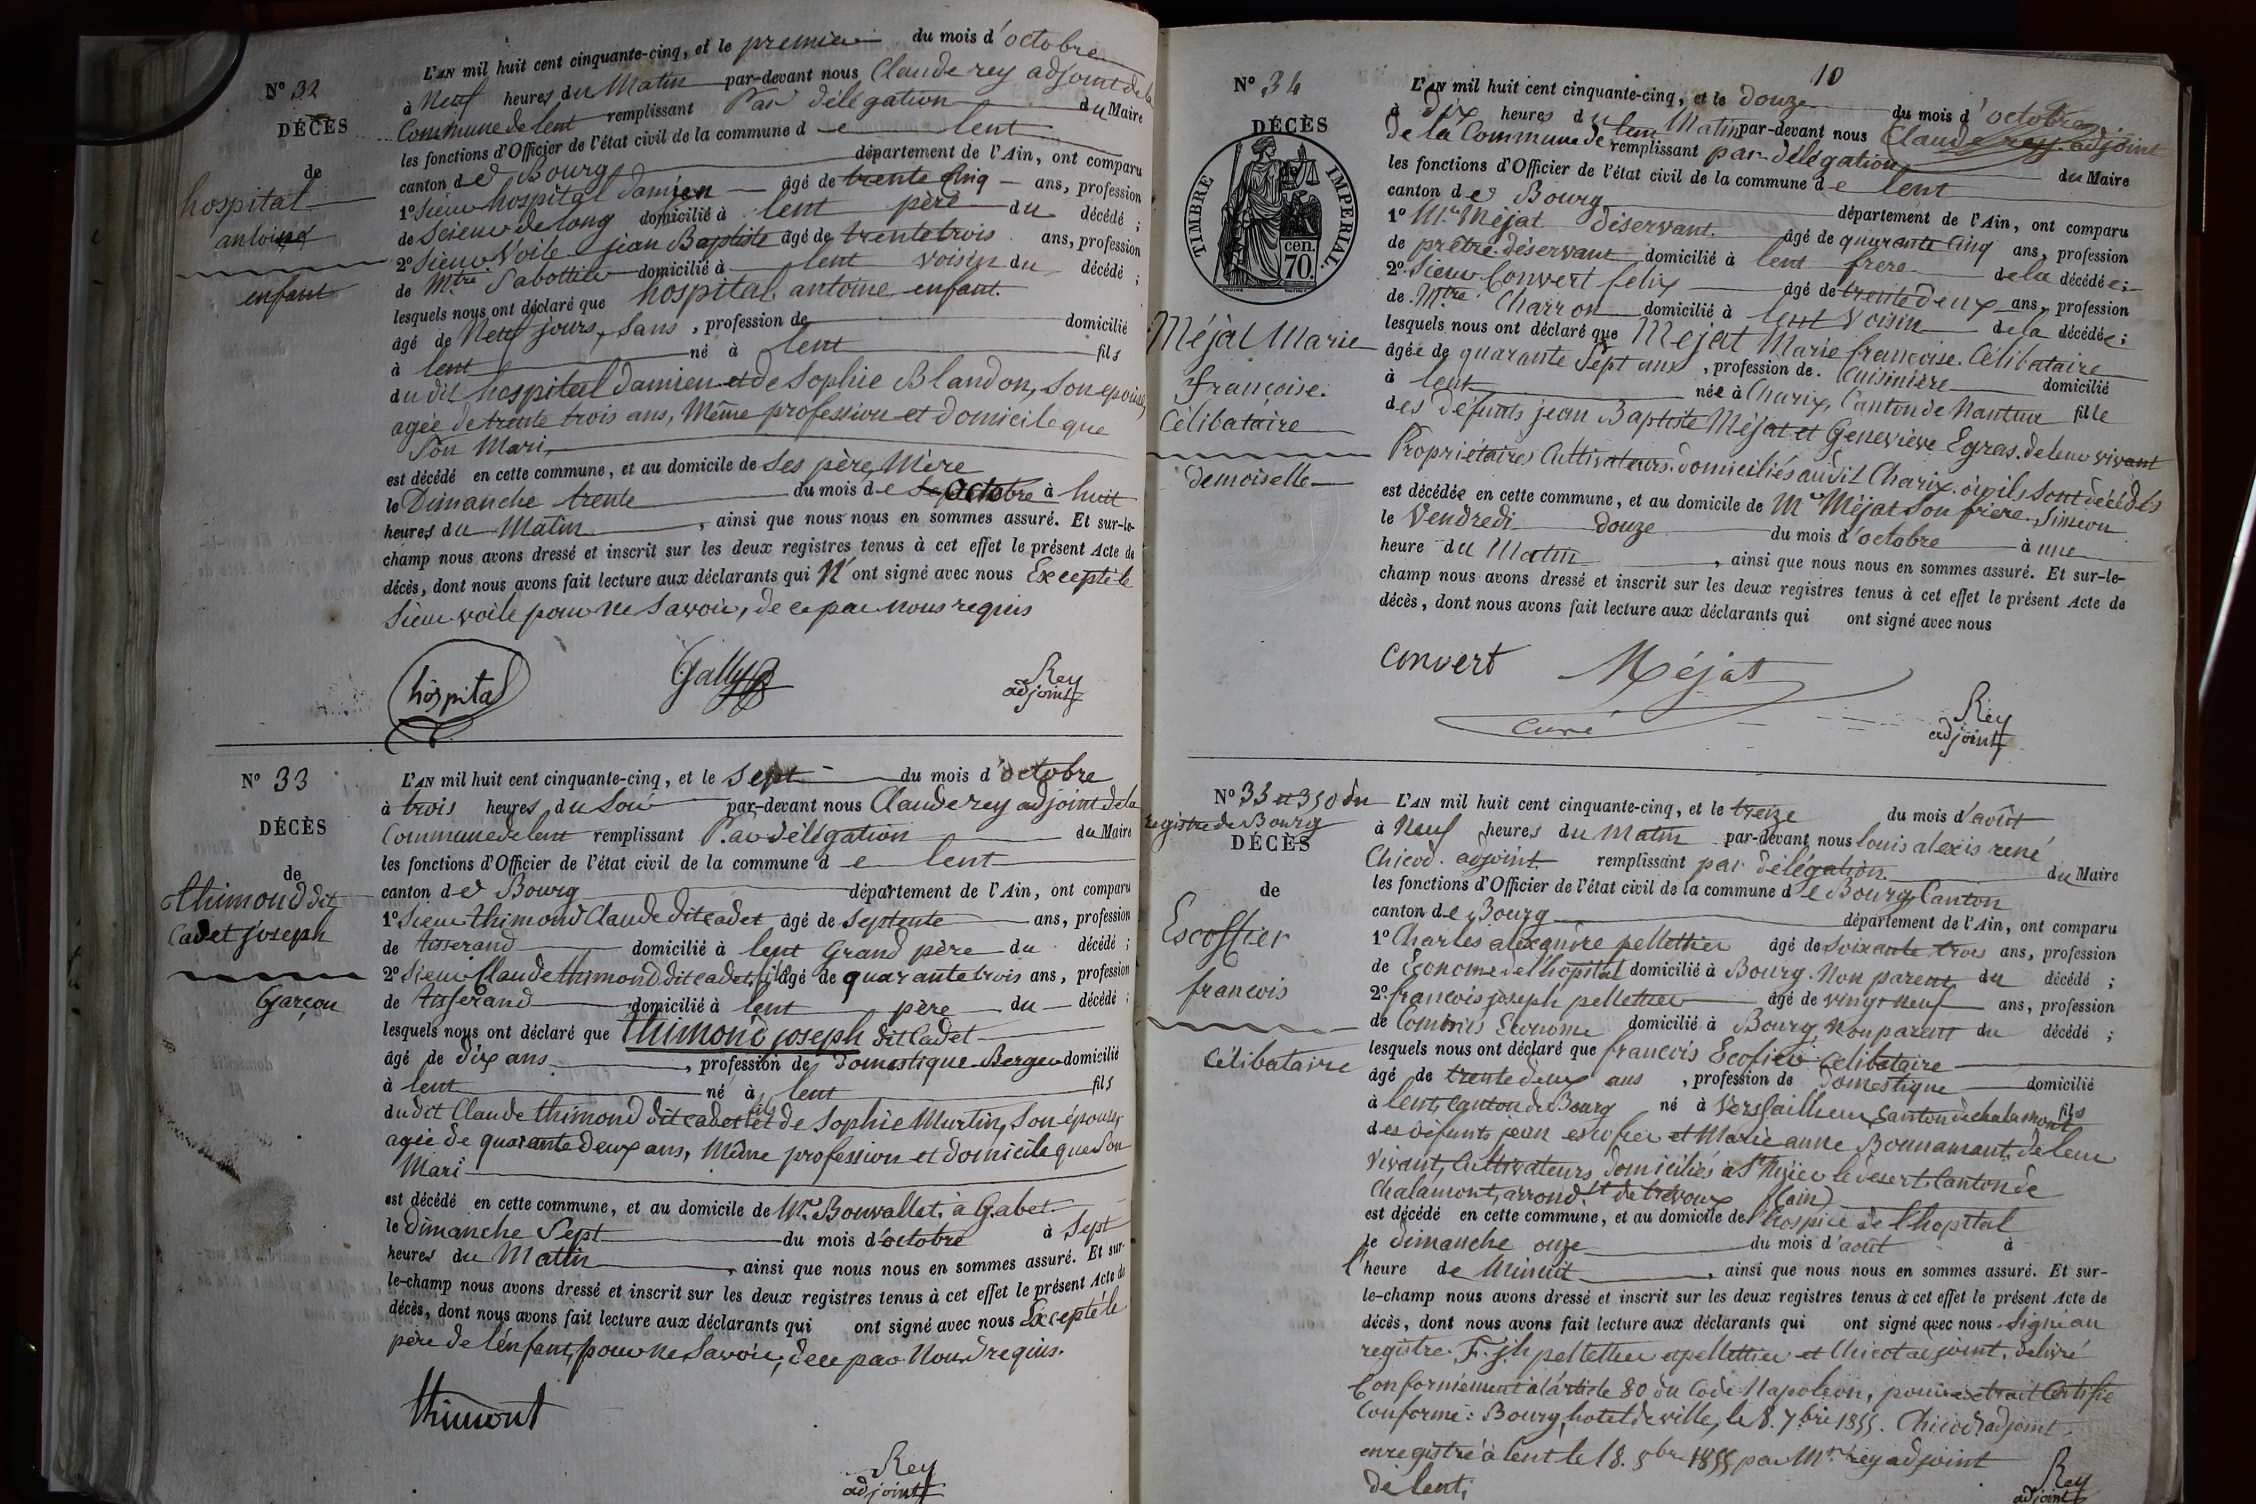 N° 32
DÉCÈS
de
hospital
antoine
enfant
L'AN mil huit cent cinquante-cinq, et le premier du mois d'octobre
à Neuf heures du Matin par-devant nous Claude rey adjoint de la
Commune de lent remplissant Par délégation du Maire
les fonctions d'Officier de l'état civil de la commune de lent
canton de Bourg département de l'Ain, ont comparu
1° Sieur hospital Damien âgé de trente cinq ans, profession
de Scieur de long domicilié à lent père du décédé ;
2° Sieur Voile jean Baptiste âgé de trente trois ans, profession
de Mtre Sabottier domicilié à lent voisin du décédé ;
lesquels nous ont déclaré que hospital antoine enfant.
âgé de Neuf jours, sans , profession de domicilié
à lent né à lent fils
du dit hospital Damien et de Sophie Blandon, son epouse,
agée de trente trois ans, Même profession et domicile que
son Mari,
est décédé en cette commune, et au domicile de ses père, Mère
le Dimanche trente du mois de octobre à huit
heures du Matin , ainsi que nous nous en sommes assuré. Et sur-le-
champ nous avons dressé et inscrit sur les deux registres tenus à cet effet le présent Acte de
décès, dont nous avons fait lecture aux déclarants qui N'ont signé avec nous Excepté le
Sieur voile pour ne savoir, de ce par nous requis
hôspital Gally Rey
adjoint
N° 33
DÉCÈS
de
thimond dit
Cadet joseph
Garçon
L'AN mil huit cent cinquante-cinq, et le sept du mois d'octobre
à trois heures du Soir par-devant nous Claude rey adjoint de la
Commune de lent remplissant Par délégation du Maire
les fonctions d'Officier de l'état civil de la commune de lent
canton de Bourg département de l'Ain, ont comparu
1° Sieur thimond Claude dit cadet âgé de septente ans, profession
de tisserand domicilié à lent Grand père du décédé ;
2° Sieur Claude thimond dit cadet, fils âgé de quarante trois ans, profession
de tisserand domicilié à lent père du décédé ;
lesquels nous ont déclaré que thimond joseph dit Cadet
âgé de dix ans , profession de domestique Berger domicilié
à lent né à lent fils
du dit Claude thimond dit cadet fils et de Sophie Murtin, son épouse,
agée de quarante deux ans, Même profession et domicile que son
Mari
est décédé en cette commune, et au domicile de Mr Bouvallet. à Gabet.
le dimanche Sept du mois d'octobre à sept
heures du Matin , ainsi que nous nous en sommes assuré. Et sur-
le-champ nous avons dressé et inscrit sur les deux registres tenus à cet effet le présent Acte de
décès, dont nous avons fait lecture aux déclarants qui ont signé avec nous Excepté le
père de l'enfant, pour ne savoir, de ce par Nous requis.
thimont
Rey
adjoint
10
N° 34
DÉCÈS
TIMBRE IMPERIAL.
cen.
70.
Méjat Marie
françoise.
Célibataire
demoiselle
L'AN mil huit cent cinquante-cinq, et le douze du mois d'octobre
à dix heures du Matin par-devant nous Claude rey. adjoint
de la Commune de lent remplissant par délégation du Maire
les fonctions d'Officier de l'état civil de la commune de lent
canton de Bourg département de l'Ain, ont comparu
1° Mr. Méjat déservant âgé de quarante cinq ans, profession
de prêtre déservant domicilié à lent frere de la décédée ;
2° Sieur Convert felix âgé de trente deux ans, profession
de Mtre Charron domicilié à lent Voisin de la décédée ;
lesquels nous ont déclaré que Mejat Marie francoise. Célibataire
âgée de quarante Sept ans , profession de Cuisinière domicilié
à lent née à Charix, Canton de Nantua fille
des défunts jean Baptiste Méjat et Geneviève Egras. de leur vivant
Propriétaires Cultivateurs domiciliés au dit Charix. où ils sont décédés
est décédée en cette commune, et au domicile de Mr Méjat son frère. Siméon
le Vendredi douze du mois d'octobre à une
heure du Matin , ainsi que nous nous en sommes assuré. Et sur-le-
champ nous avons dressé et inscrit sur les deux registres tenus à cet effet le présent Acte de
décès, dont nous avons fait lecture aux déclarants qui ont signé avec nous
convert Méjat
curé
Rey
adjoint
N° 35 et 350 du
registre de Bourg
DÉCÈS
de
Escoffier
francois
célibataire
L'AN mil huit cent cinquante-cinq, et le treize du mois d'août
à Neuf heures du Matin par-devant nous louis alexis rené
Chicod. adjoint remplissant par délégation du Maire
les fonctions d'Officier de l'état civil de la commune de Bourg, Canton
canton de Bourg département de l'Ain, ont comparu
1° Charles alexandre pellettier âgé de soixante trois ans, profession
de Économe de l'hôpital domicilié à Bourg. Non parent du décédé ;
2° francois joseph pellettier âgé de vingt neuf ans, profession
de Commis Econome domicilié à Bourg, Non parent du décédé ;
lesquels nous ont déclaré que francois Ecofier célibataire
âgé de trente deux ans , profession de Domestique domicilié
à lent, canton de Bourg né à Versailleux Canton de chalamont fils
des défunts jean escofier et Marie anne Bonnamant, de leur
Vivant, Cultivateurs domiciliés à St Nizier le desert. Canton de
Chalamont, arrond.t de trévoux (Ain)
est décédé en cette commune, et au domicile de l'hospice de l'hopital
le dimanche onze du mois d'août à
l'heure de Minuit , ainsi que nous nous en sommes assuré. Et sur-
le-champ nous avons dressé et inscrit sur les deux registres tenus à cet effet le présent Acte de
décès, dont nous avons fait lecture aux déclarants qui ont signé avec nous. Signé au
registre. F. jh pellettier apellettier et Chicot adjoint. délivré
Conformement à l'article 80 du Code Napoleon, pour extrait Certifié
Conforme : Bourg, hotel de ville, le 8. 7bre 1855. Chicod adjoint
enregistré à lent le 18. 8bre 1855 par Mr rey adjoint
de lent.
Rey
adjoint